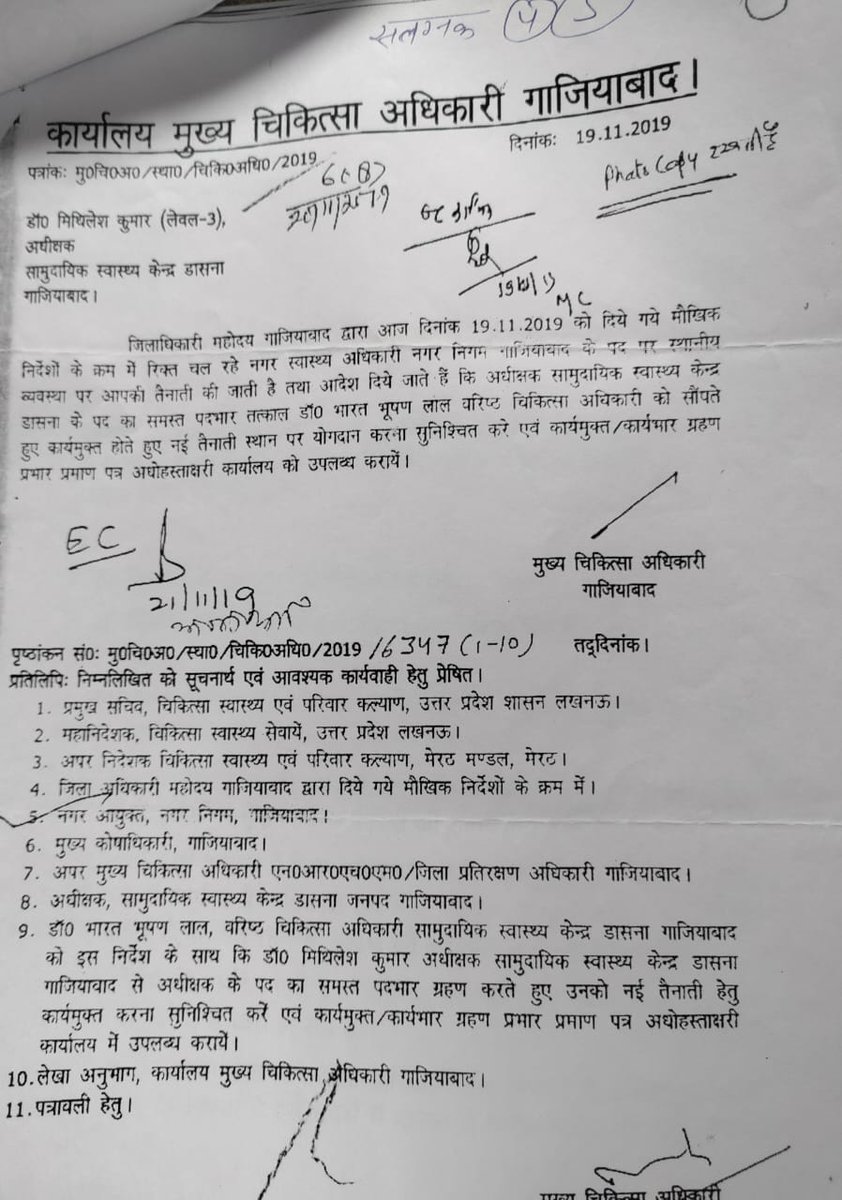 संलग्नक
कार्यालय मुख्य चिकित्सा अधिकारी गाजियाबाद।
पत्रांकः मु0चि0अ0/स्था0/चिकि0अधि0/2019
दिनांकः 19.11.2019
Photo Copy
डॉ0 मिथिलेश कुमार (लेवल-3),
अधीक्षक
सामुदायिक स्वास्थ्य केन्द्र डासना
गाजियाबाद।
MC
जिलाधिकारी महोदय गाजियाबाद द्वारा आज दिनांक 19.11.2019 को दिये गये मौखिक
निर्देशों के क्रम में रिक्त चल रहे नगर स्वास्थ्य अधिकारी नगर निगम गाजियाबाद के पद पर स्थानीय
व्यवस्था पर आपकी तैनाती की जाती है तथा आदेश दिये जाते हैं कि अधीक्षक सामुदायिक स्वास्थ्य केन्द्र
डासना के पद का समस्त पदभार तत्काल डॉ0 भारत भूषण लाल वरिष्ठ चिकित्सा अधिकारी को सौंपते
हुए कार्यमुक्त होते हुए नई तैनाती स्थान पर योगदान करना सुनिश्चित करे एवं कार्यमुक्त/कार्यभार ग्रहण
प्रभार प्रमाण पत्र अधोहस्ताक्षरी कार्यालय को उपलब्ध करायें।
EC
21/11/19
मुख्य चिकित्सा अधिकारी
गाजियाबाद
पृष्ठांकन सं0ः मु0चि0अ0/स्था0/चिकि0अधि0/2019/6347(1-10) तद्दिनांक।
प्रतिलिपिः निम्नलिखित को सूचनार्थ एवं आवश्यक कार्यवाही हेतु प्रेषित।
1. प्रमुख सचिव, चिकित्सा स्वास्थ्य एवं परिवार कल्याण, उत्तर प्रदेश शासन लखनऊ।
2. महानिदेशक, चिकित्सा स्वास्थ्य सेवायें, उत्तर प्रदेश लखनऊ।
3. अपर निदेशक चिकित्सा स्वास्थ्य एवं परिवार कल्याण, मेरठ मण्डल, मेरठ।
4. जिला अधिकारी महोदय गाजियाबाद द्वारा दिये गये मौखिक निर्देशों के क्रम में।
5. नगर आयुक्त, नगर निगम, गाजियाबाद।
6. मुख्य कोषाधिकारी, गाजियाबाद।
7. अपर मुख्य चिकित्सा अधिकारी एन0आर0एच0एम0/जिला प्रतिरक्षण अधिकारी गाजियाबाद।
8. अधीक्षक, सामुदायिक स्वास्थ्य केन्द्र डासना जनपद गाजियाबाद।
9. डॉ0 भारत भूषण लाल, वरिष्ठ चिकित्सा अधिकारी सामुदायिक स्वास्थ्य केन्द्र डासना गाजियाबाद
को इस निर्देश के साथ कि डॉ0 मिथिलेश कुमार अधीक्षक सामुदायिक स्वास्थ्य केन्द्र डासना
गाजियाबाद से अधीक्षक के पद का समस्त पदभार ग्रहण करते हुए उनको नई तैनाती हेतु
कार्यमुक्त करना सुनिश्चित करें एवं कार्यमुक्त/कार्यभार ग्रहण प्रभार प्रमाण पत्र अधोहस्ताक्षरी
कार्यालय में उपलब्ध करायें।
10. लेखा अनुभाग, कार्यालय मुख्य चिकित्सा अधिकारी गाजियाबाद।
11. पत्रावली हेतु।
मुख्य चिकित्सा अधिकारी